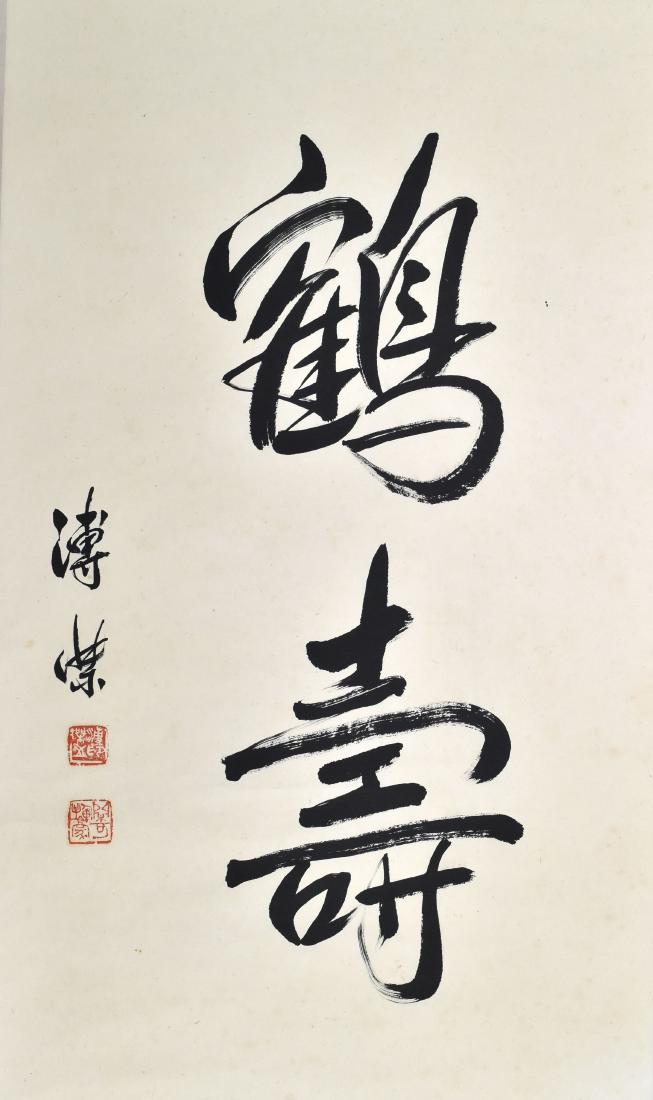 鶴壽
溥傑